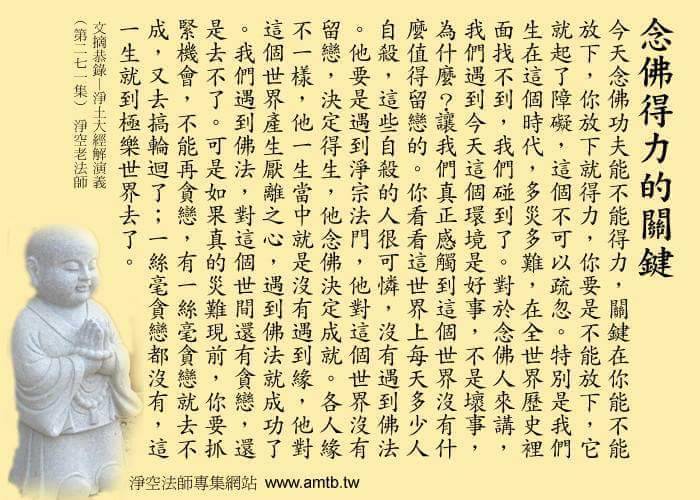 念佛得力的關鍵
今天念佛功夫能不能得力，關鍵在你能不能
放下，你放下就得力，你要是不能放下，它
就起了障礙，這個不可以疏忽。特別是我們
生在這個時代，多災多難，在全世界歷史裡
面找不到，我們碰到了。對於念佛人來講，
我們遇到今天這個環境是好事，不是壞事，
為什麼？讓我們真正感觸到這個世界沒有什
麼值得留戀的。你看看這世界上每天多少人
自殺，這些自殺的人很可憐，沒有遇到佛法
。他要是遇到淨宗法門，他對這個世界沒有
留戀，決定得生，他念佛決定成就。各人緣
不一樣，他一生當中就是沒有遇到緣，他對
這個世界產生厭離之心，遇到佛法就成功了
。我們遇到佛法，對這個世間還有貪戀，還
是去不了。可是如果真的災難現前，你要抓
緊機會，不能再貪戀，有一絲毫貪戀就去不
成，又去搞輪迴了；一絲毫貪戀都沒有，這
一生就到極樂世界去了。
文摘恭錄—淨土大經解演義
（第二七一集） 淨空老法師
淨空法師專集網站 www.amtb.tw